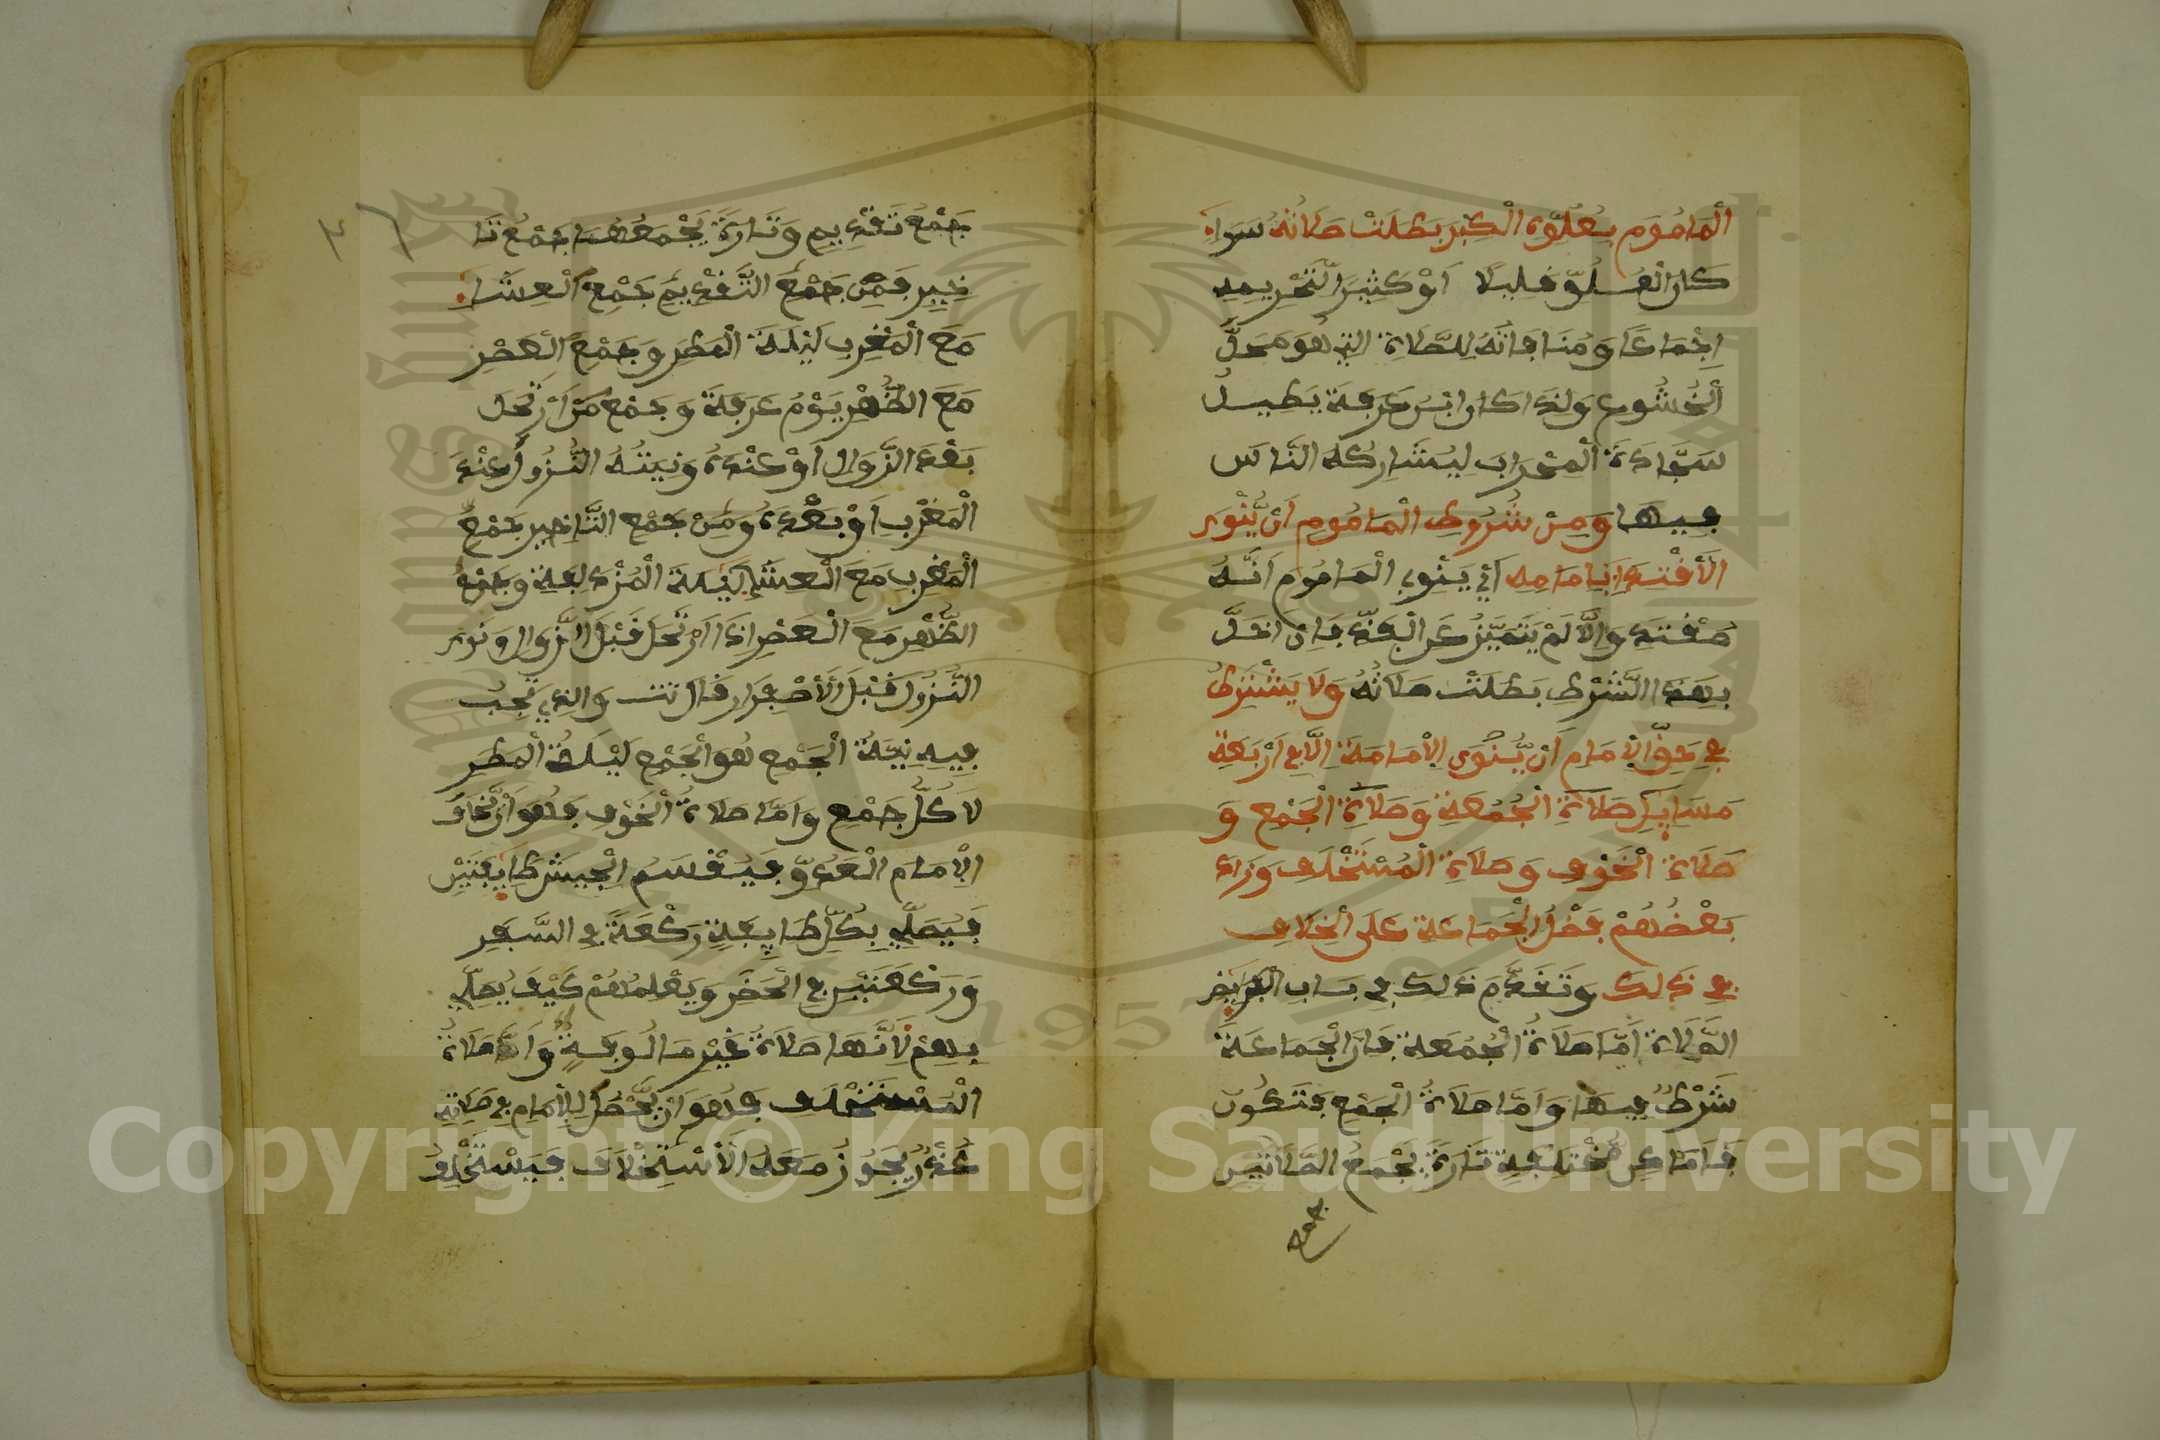 الْمَامُوم بِعُلُوِّهِ الْكِبْرَ بَطَلَتْ صَلَاتُهُ سَوَاءٌ
كان الْعُلُوُّ قليلًا أَوْ كثيرًا لتَحْرِيمِهِ
إجْمَاعًا وَمُنَافَاتَهُ لِلصَّلَاةِ التي هُوَ مَحَلُّ
الْخُشُوعِ وَلِذَا كان ابْنُ عَرَفَةَ يَطيلُ
سَجَّادَةَ الْمِحْرَابِ لِيُشَارِكَهُ النَّاسَ
فِيهَا وَمِنْ شُرُوطِ الْمَامُومِ أَنْ يَّنْوِيَ
الأقْتِدَا بِإِمَامِهِ أَيْ يَنْوِي الْمَامُوم أَنَّهُ
مُقْتَدٍ وَإِلَّا لَمْ يَتَمَيَّزْ عَن الْفَذِّ فَإِنْ أَخَلَّ
بِهَذَا الشَّرْطِ بَطَلَتْ صَلَاتُهُ وَلَا يَشْتَرِطُ
في حَقِّ الإمَامِ أَنْ يَّنْوِيَ الإمَامَةَ إلَّا في أَرْبَعَةِ
مَسَايِلَ صَلَاةِ الْجُمُعَةِ وَصَلَاةِ الْجَمْعِ وَ
صَلَاةِ الْخَوْفِ وَصَلَاةِ الْمُسْتَخْلَفِ وَزَادَ
بَعْضُهُمْ فَضْلُ الْجَمَاعَةِ عَلَى الْخِلَافِ
في ذَلِكَ وَتَقَدَّمَ ذَلِكَ في بَابِ الْفَرَايِضِ
الصَّلَاةِ أَمَّا صَلَاةُ الْجُمُعَةِ فَإِنَّ الْجَمَاعَةَ
شَرْطٌ فيهَا وَأمَّا صَلَاةُ الْجَمْعِ فَتَكُون
في أَمَاكِن مُّخْتَلِفَةٍ تَارَةً يَجْمَعُ الصَّلَاتَيْنِ
جمع
٣٦
جَمْعُ تَقْدِيمٍ وَتَارَةً يَجْمَعُهُمَا جَمْعُ تَا
خِيرٍ فَمِنْ جَمْعِ التَّقْدِيمِ جَمْعُ الْعِشَاءِ
مَعَ الْمَغْرِبِ لَيْلَةَ الْمَطَرِ وَجَمْعُ الْعَصْرِ
مَعَ الظُّهْرِ يَوْمُ عَرَفَةَ وَجَمْعُ مَنِ ارْتَحَلَ
بَعْدَ الزَّوَالِ أَوْ عِنْدَهُ وَنِيَتُهُ النُّزُولُ عِنْدَ
الْمَغْرِبِ أَوْ بَعْدَهُ وَمِنْ جَمْعِ التَّاخِيرِ جَمْعُ
الْمَغْرِبِ مَعَ الْعِشَاءِ لَيْلَةَ الْمُزْدَلِفَةِ وَجَمْعُ
الظُّهْرِ مَعَ الْعَصْرِ إذَا ارْتَحَلَ قَبْلَ الزَّوَالِ وَنَوَى
النُّزُولَ قَبْلَ الأصْفِرَارِ قَالَ تت وَالذِي تَجِبُ
فِيهِ نِيَةُ الْجَمْعِ هُوَ الْجَمْعِ لَيْلَةُ الْمَطَرِ
لَا كُلَّ جَمْعٍ وَأمَّا صَلَاةُ الْخَوْفِ فَهُوَ أَنْ يَّخَافَ
الإمَام الْعَدُوّ فَيُقْسَمُ الْجَيْشَ طَايِفَتَيْنِ
فَيُصَلِّي بِكُلِّ طَايِفَةٍ رَكْعَةً في السَّفَرِ
وَرَكْعَتَيْنِ في الْحَضَرِ وَيَعْلِمُهُمْ كَيْفَ يُصَلِّي
بِهِمْ لِأَنَّهَا صَلَاةٌ غَيْرِ مَالُوفَةٍ وَأَمَّا صَلَاةُ
الْمُسْتَخْلَفِ فَهُوَ أَنْ يَّحْصُلَ لِلإمَامِ في صَلَاتِهِ
عُذْرٌ يَجُوزُ مَعَهُ الأسْتِخْلَافَ فَيَسْتَخْلِفُ